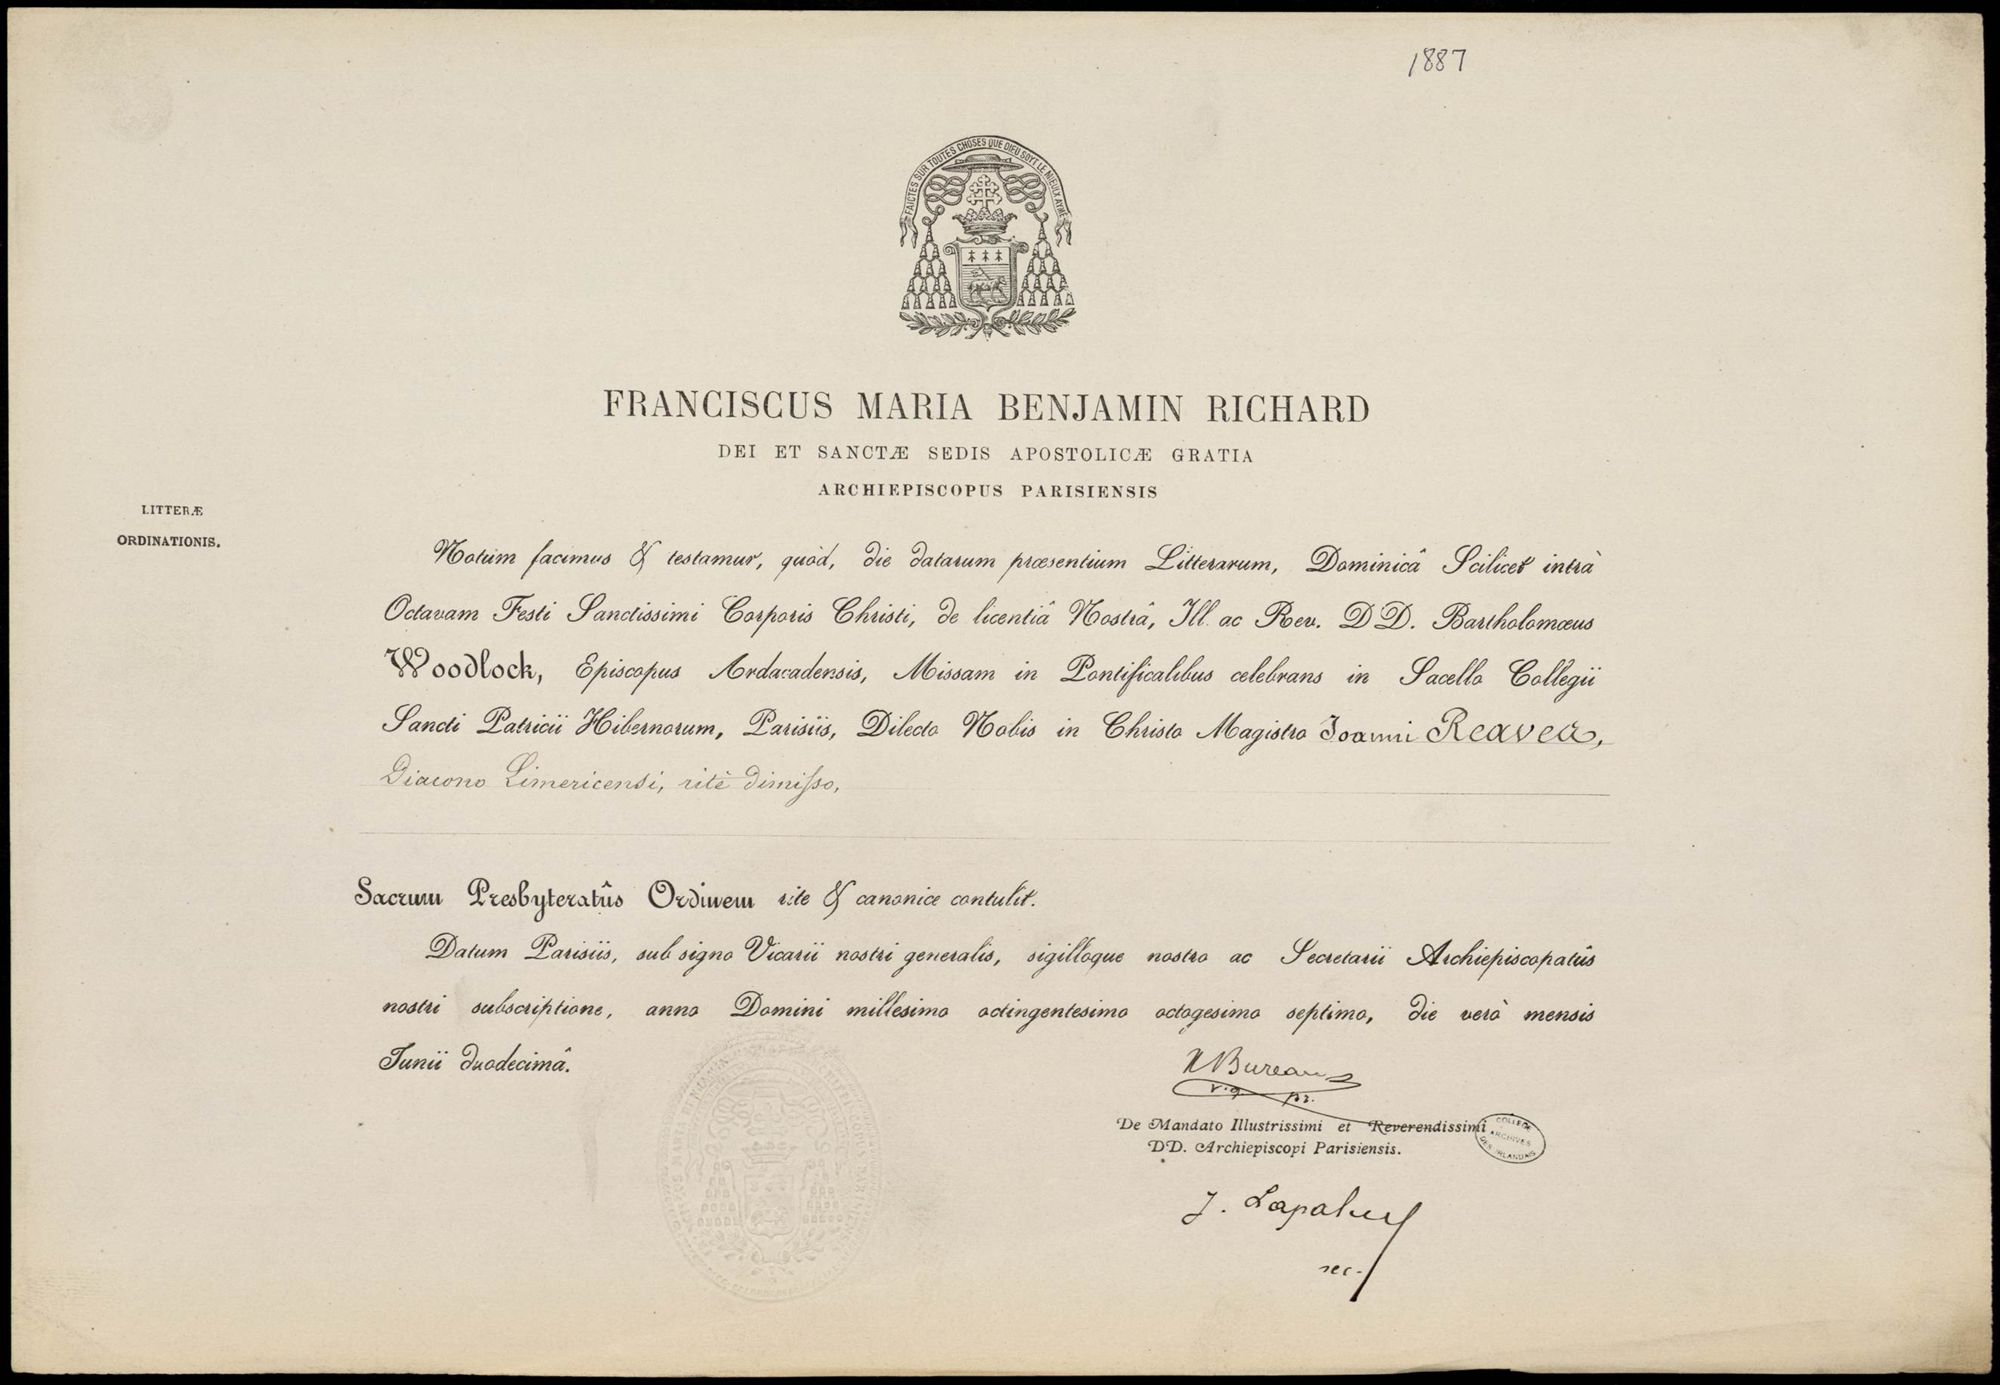 1887
FAICTES SUR TOUTES CHOSES QUE DIEU SOYT LE MIEULX AYMÉ
FRANCISCUS MARIA BENJAMIN RICHARD
DEI ET SANCTÆ SEDIS APOSTOLICÆ GRATIA
ARCHIEPISCOPUS PARISIENSIS
LITTERÆ
ORDINATIONIS.
Notum facimus & testamur, quòd, die datarum præsentium Litterarum, Dominicâ Scilicet intrà
Octavam Festi Sanctissimi Corporis Christi, de licentiâ Nostrâ, Ill. ac Rev. DD. Bartholomæus
Woodlock, Episcopus Ardacadensis, Missam in Pontificalibus celebrans in Sacello Collegii
Sancti Patricii Hibernorum, Parisiis, Dilecto Nobis in Christo Magistro Joanni Reavea,
Diacono Limericensi, ritè dimisso,
Sacrum Presbyteratûs Ordinem rite & canonice contulit.
Datum Parisiis, sub signo Vicarii nostri generalis, sigilloque nostro ac Secretarii Archiepiscopatûs
nostri subscriptione, anno Domini millesimo octingentesimo octogesimo septimo, die verò mensis
Junii duodecimâ.
Bureau
v.g. pr.
De Mandato Illustrissimi et Reverendissimi
DD. Archiepiscopi Parisiensis.
COLLEGE
ARCHIVES
DES IRLANDAIS
J.
sec.